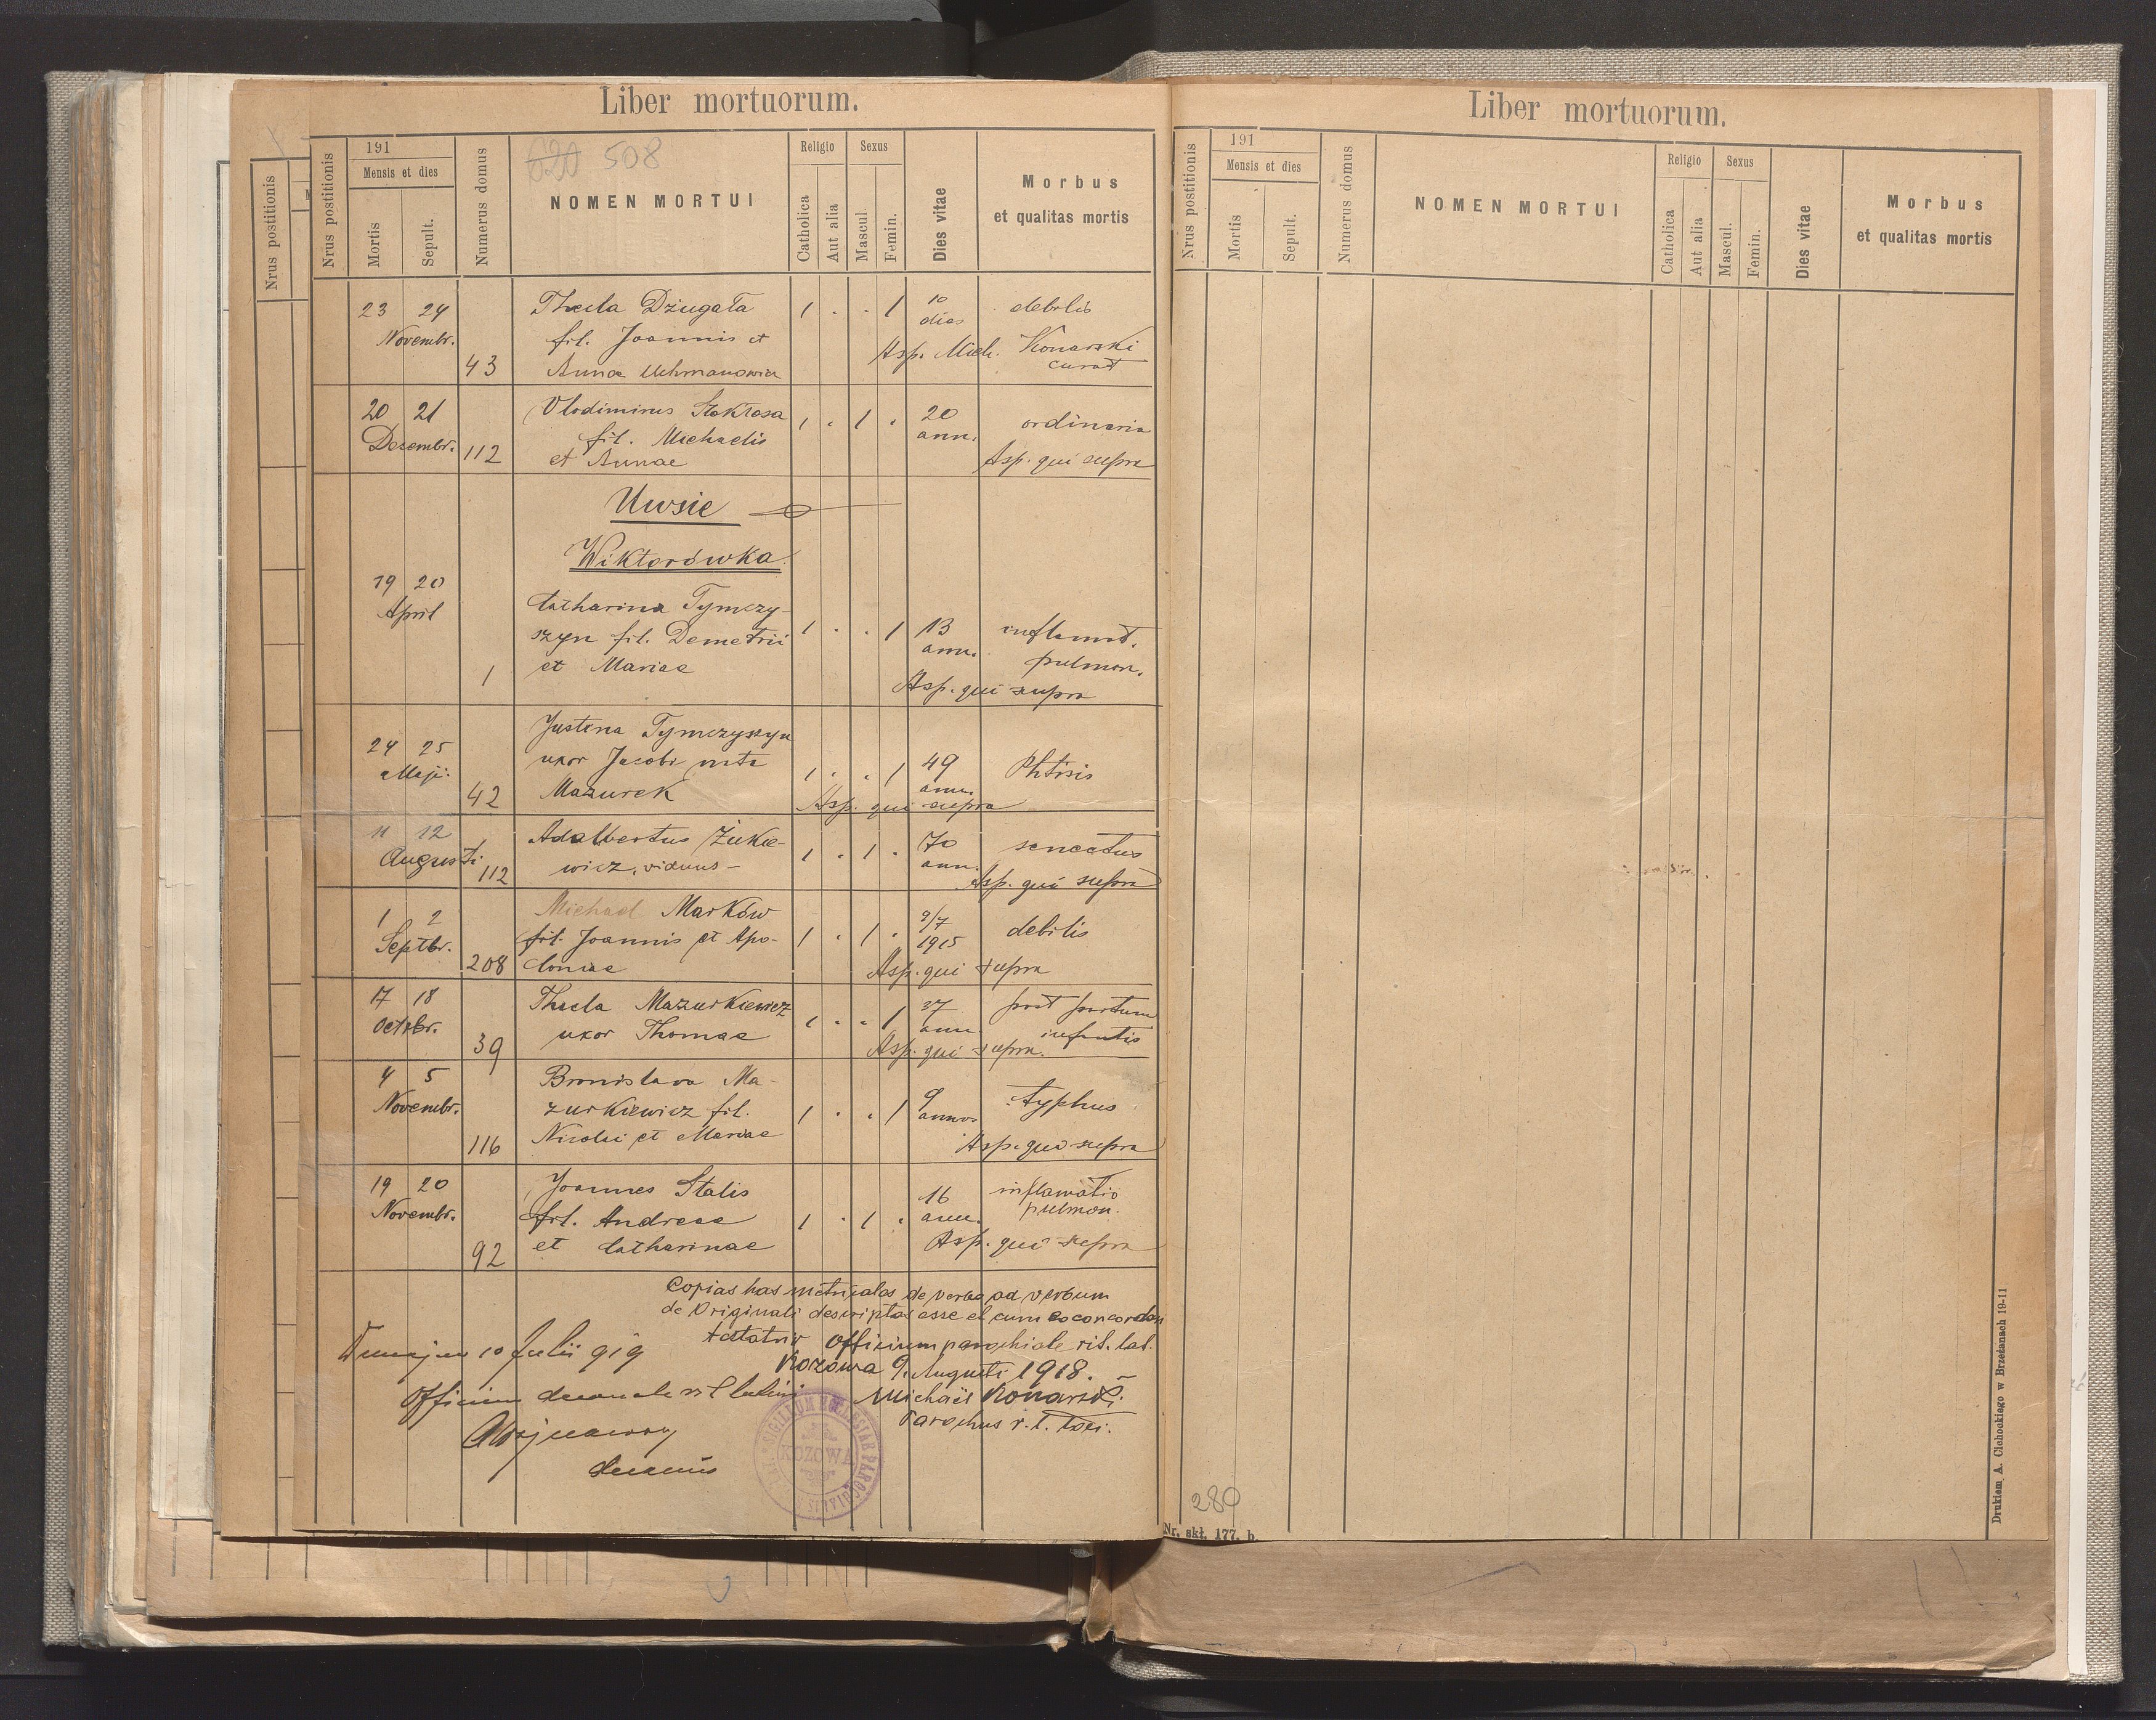 Liber mortuorum.
Nrus postitionis
191
Mensis et dies
Mortis
Sepult.
Numerus domus
620 508
NOMEN MORTUI
Religio
Catholica
Aut alia
Sexus
Mascul.
Femin.
Dies vitae
Morbus
et qualitas mortis
23 24 Thecla Dziugała 1 . . 1 10 debilis
Novembr. fil. Joannis et dies
43 Anna Uchmanowicz Asp. Mich. Konarski
curat
20 21 Vlodimirus Stokłosa 1 . 1 . 20 ordinaria
Decembr. fil. Michaelis ann.
112 et Annae Asp. qui supra
Uwsie
Wiktorówka
19 20
April Catharina Tymczy-
szyn fil. Demetrii 1 . . 1 13 inflamat.
1 et Mariae ann. pulmon.
Asp. qui supra
24 25 Justina Tymczyszyn
Maji uxor Jacobi nata 1 . . 1 49 Phtisis
42 Mazurek ann.
Asp. qui supra
11 12 Adalbertus Żukie- 1 . 1 . 70 senectus
Augusti 112 wicz, viduus - ann.
Asp. qui supra
1 2 Michael Marków
Septbr. fil. Joannis et Apo- 1 . 1 . 9/7 1915 debilis
208 loniae Asp. qui supra
17 18 Thecla Mazurkiewicz 1 . . 1 37 post partum
Octobr. 39 uxor Thomae ann. infantis
Asp. qui supra.
4 5 Bronislava Ma-
Novembr. zurkiewicz fil. 1 . . 1 9 typhus
116 Nicolai et Mariae annos
Asp. qui supra
19 20 Joannes Stalis 16 inflamatio
Novembr. fil. Andreae 1 . 1 . ann. pulmon.
92 et Catharinae Asp. qui supra
Copias has metricales de verbo ad verbum
de Originali descriptas esse et cum eo concordare
testatur Officium parochiale rit. lat.
Kozowa 9. Augusti 1918.
Michaël Konarski
Parochus r. l. loci.
10 Julii 919
Officium decanale r. latini
decanus
SIGILLUM ECCLESIAE PAROCHIALIS
KOZOWA
Liber mortuorum.
Nrus postitionis
191
Mensis et dies
Mortis
Sepult.
Numerus domus
NOMEN MORTUI
Religio
Catholica
Aut alia
Sexus
Mascul.
Femin.
Dies vitae
Morbus
et qualitas mortis
280
Nr. skł. 177. b.
Drukiem A. Cichockiego w Brzeżanach 19-11
Nrus postitionis